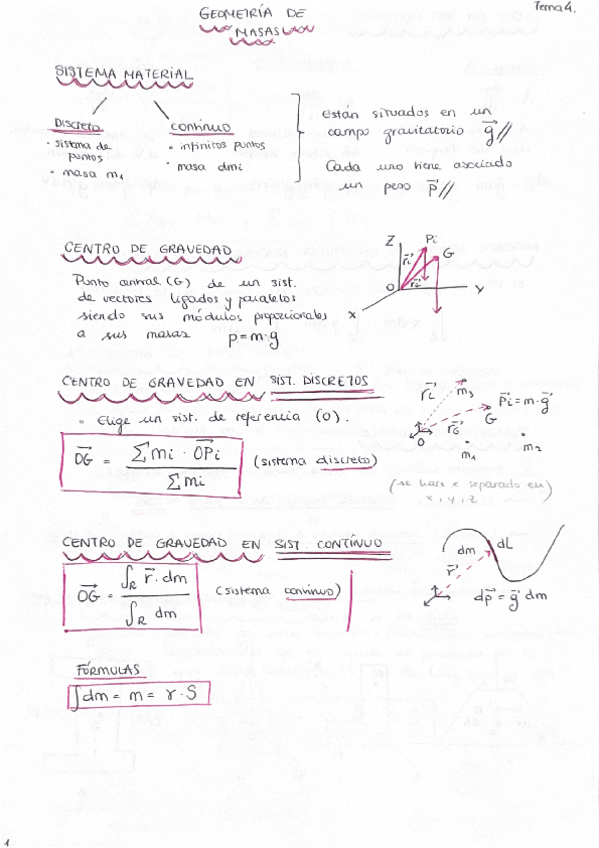 Tema 4.
GEOMETRÍA DE
MASAS
SISTEMA MATERIAL
Discreto
· sistema de
puntos
· masa m₁
Continuo
· infinitos puntos
· masa dmi
están situados en un
campo gravitatorio g⃗//
Cada uno tiene asociado
un peso p⃗//
CENTRO DE GRAVEDAD
Punto central (G) de un sist.
de vectores ligados y paralelos
siendo sus módulos proporcionales
a sus masas p=m·g
Z
Pi
G
r⃗i
r⃗G
O
Y
X
CENTRO DE GRAVEDAD EN SIST. DISCRETOS
· Elige un sist. de referencia (O).
O⃗G = Σmi · O⃗Pi / Σmi (sistema discreto)
r⃗i
m₃
P⃗i=m·g⃗
G
r⃗G
O
m₁
m₂
(se hace separado en)
x, y, z
CENTRO DE GRAVEDAD EN SIST. CONTÍNUO
O⃗G = ∫R r⃗·dm / ∫R dm (sistema continuo)
dm
dL
r⃗
dp⃗=g⃗ dm
FÓRMULAS
∫dm = m = γ·S
1